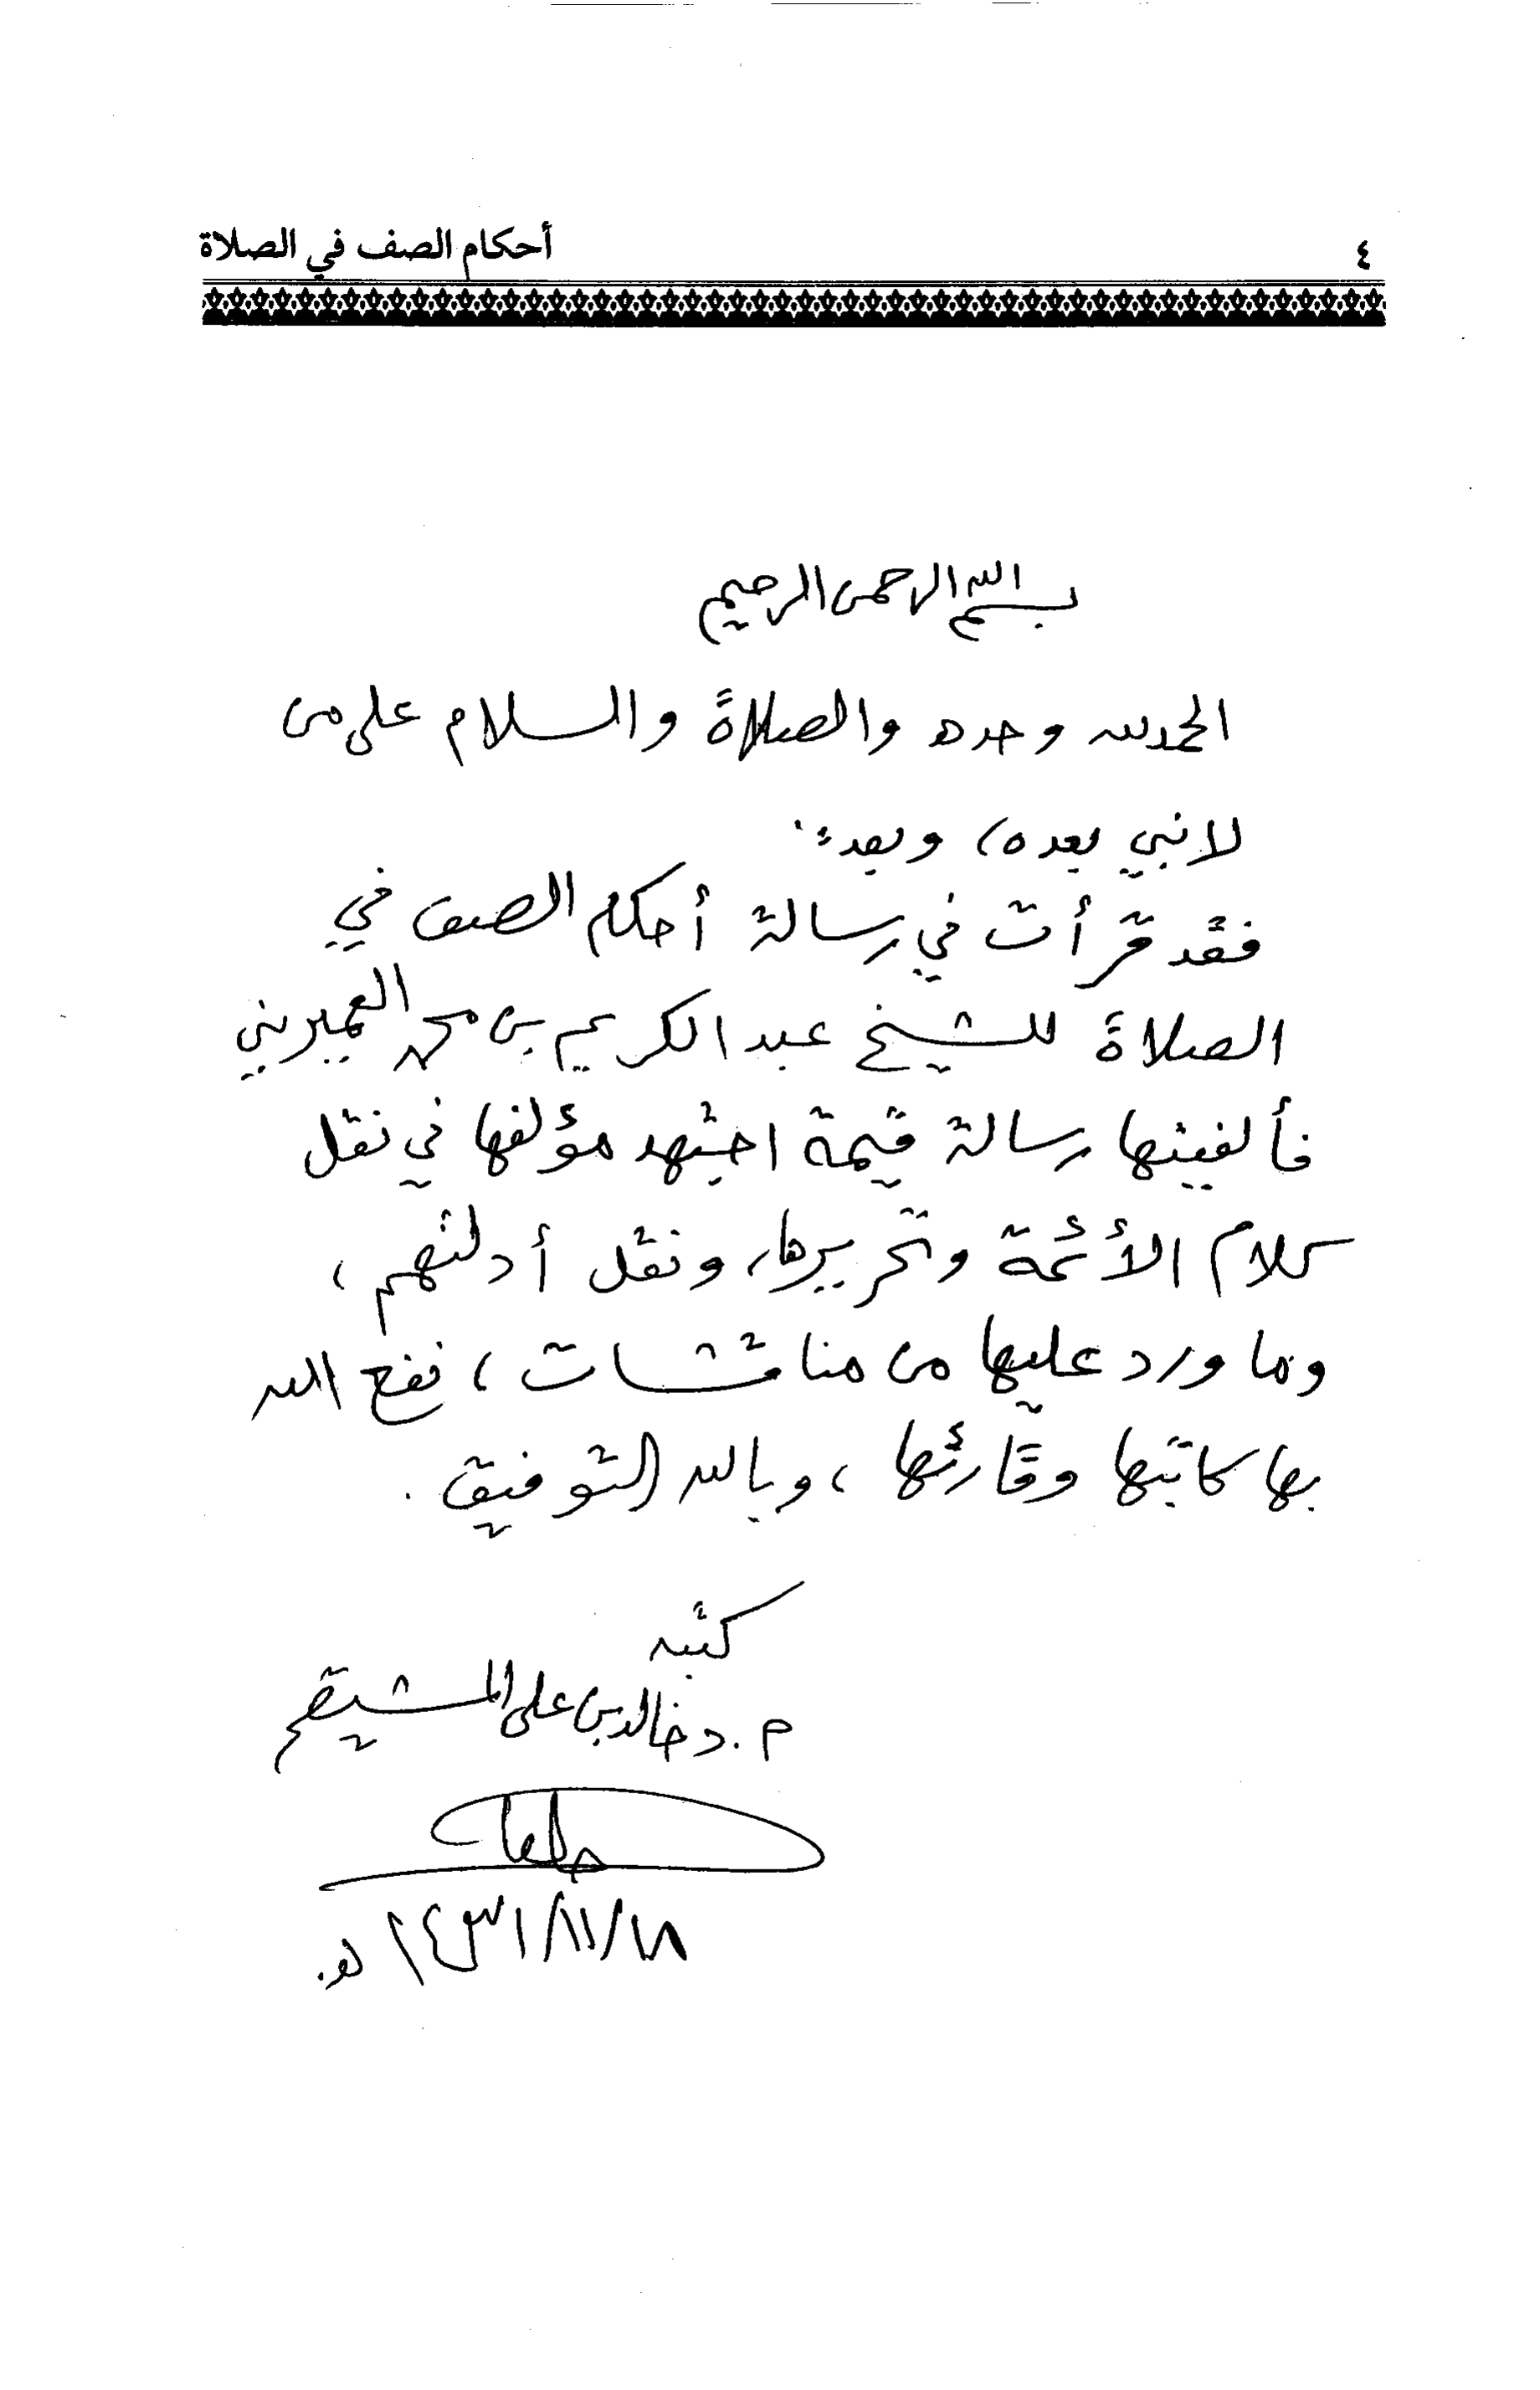 ٤ أحكام الصف في الصلاة
بسم الله الرحمن الرحيم
الحمد لله وحده والصلاة والسلام على من
لا نبي بعده، وبعد:
فقد قرأت في رسالة أحكام الصف في
الصلاة للشيخ عبد الكريم بن محمد العميريني
فألفيتها رسالة قيمة اجتهد مؤلفها في نقل
كلام الأئمة وتحريرها، ونقل أدلتهم،
وما ورد عليها من مناقشات، نفع الله
بها كاتبها وقارئها، وبالله التوفيق.
كتبه
م. د خالد بن علي المشيقح
١٤٣١/١١/١٨ هـ.